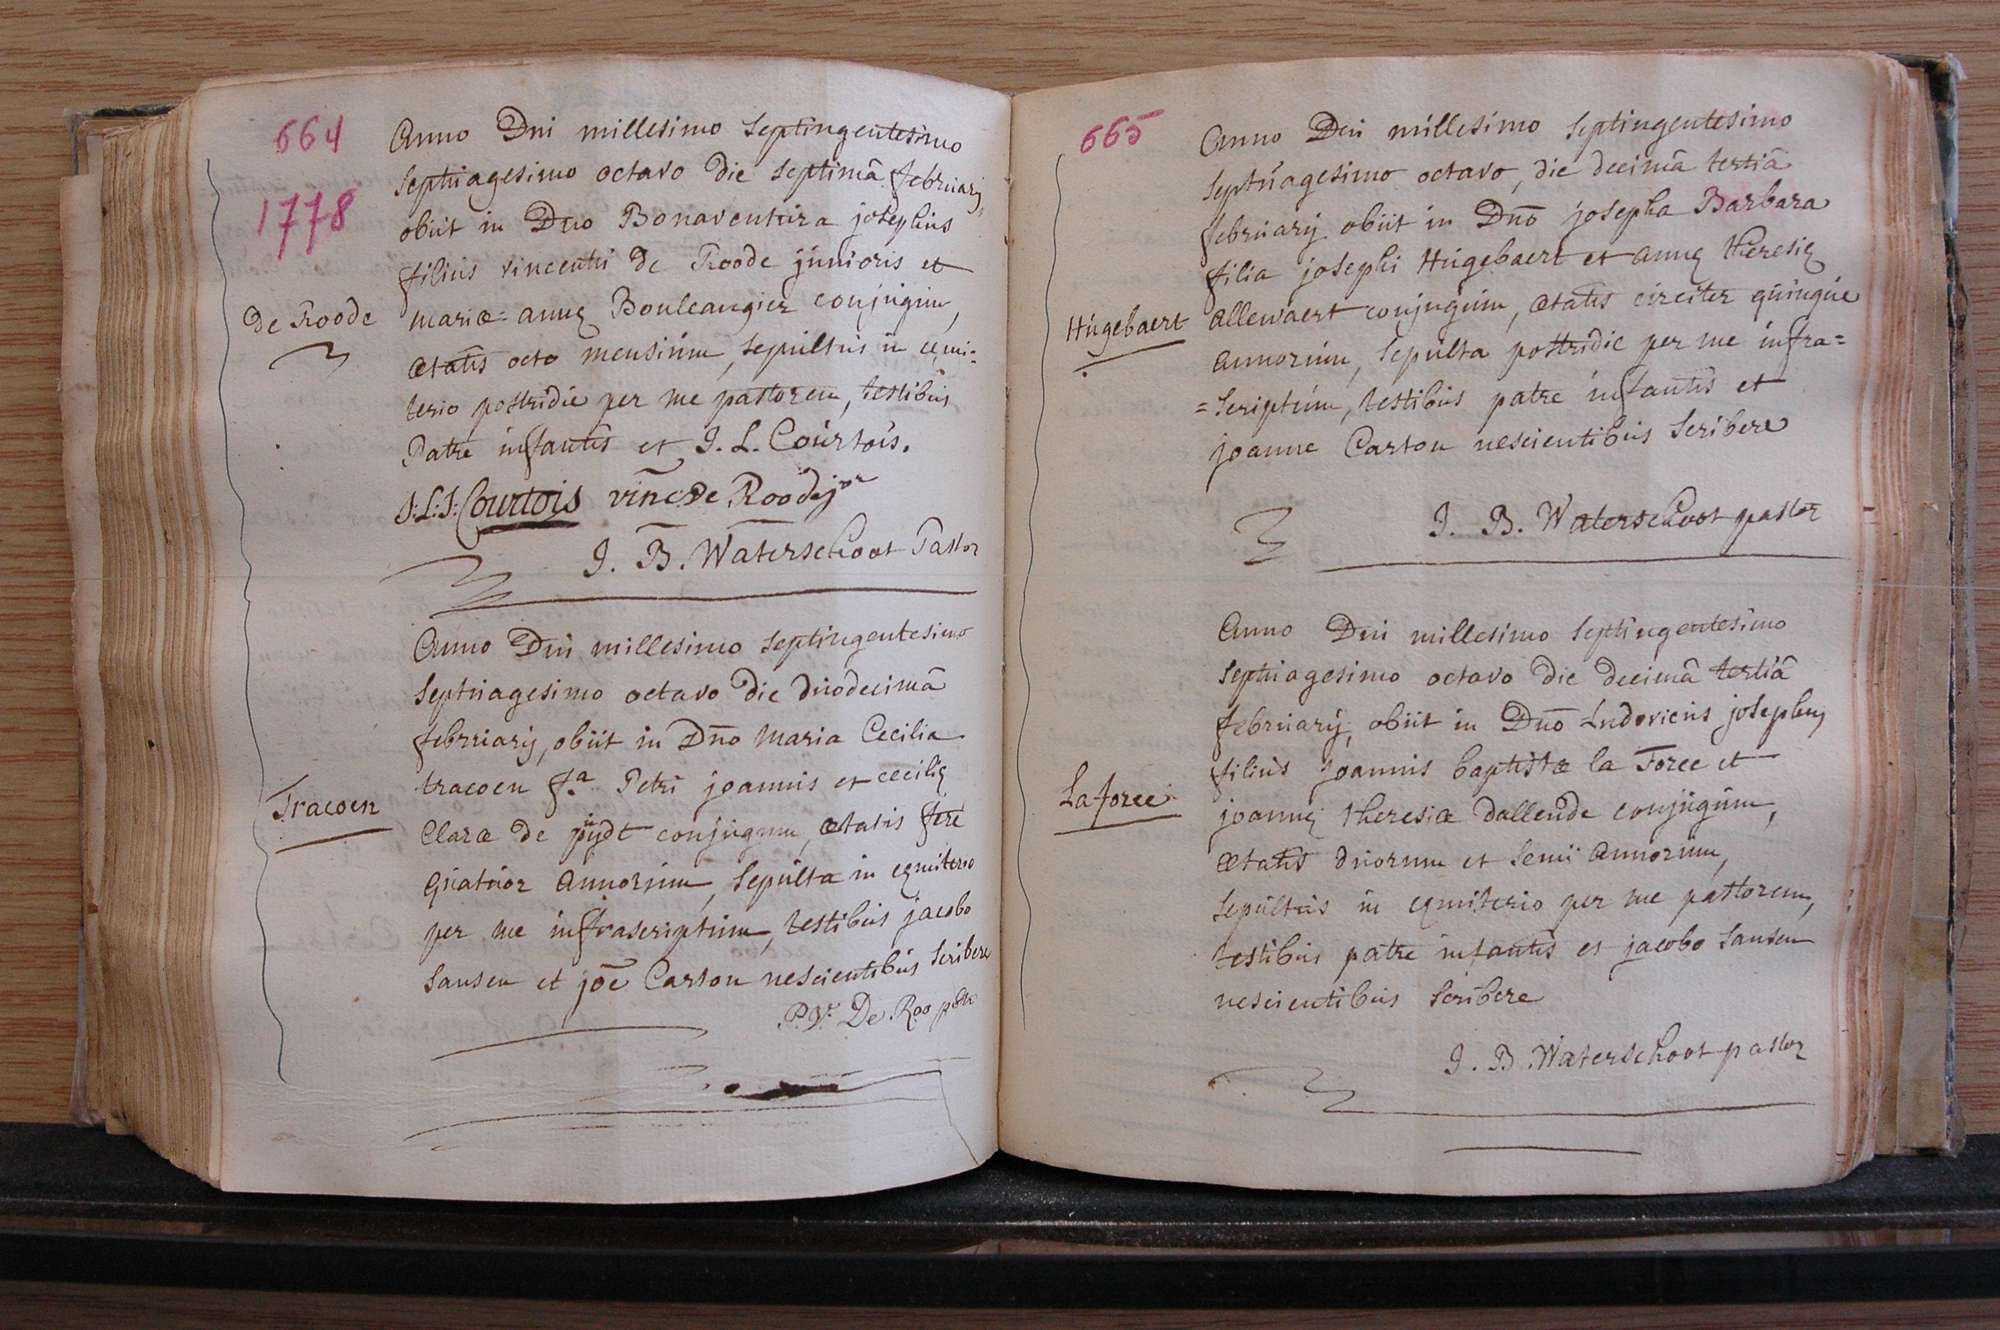 664
1778
Anno Dni millesimo septingentesimo
septuagesimo octavo die septimâ februarij,
obiit in Dno Bonaventura josephus
filius vincentii de Roode junioris et
De Roode
mariæ=annę Bouleangier conjugum,
ætatis octo mensium, sepultus in cemi=
terio postridie per me pastorem, testibus
Patre infantis et J. L. Courtois.
J:L:J: Courtois vinc De Roode jor
J. B. Waterschoot Pastor
Anno Dni millesimo septingentesimo
septuagesimo octavo die duodecimâ
februarij, obiit in Dño Maria Cecilia
tracoen fa Petri joannis et cecilię
Tracoen
Claræ de puydt conjugum, ætatis fere
quatuor annorum, sepulta in cęmiterio
per me infrascriptum, testibus jacobo
Sansen et joē Carton nescientibus scribere
P. Vr De Roo pbtr
665
Anno Dni millesimo septingentesimo
septuagesimo octavo, die decimâ tertiâ
februarij obiit in Dnō josepha Barbara
filia josephi Hugebaert et annę theresię
Hugebaert
allewaert conjugum, ætatis circiter quinque
annorum, sepulta postridie per me infra=
=scriptum, testibus patre infantis et
joanne Carton nescientibus scribere
J. B. Waterschoot pastor
Anno Dni millesimo septingentesimo
septuagesimo octavo die decimâ tertiâ
februarij, obiit in Dnō Ludovicus josephus
filius joannis baptistæ la Force et
La force
joannę theresiæ Dallende conjugum,
ætatis duorum et semi annorum,
sepultus in cęmiterio per me pastorem,
testibus patre infantis et jacobo Sansen
nescientibus scribere
J. B. Waterschoot pastor